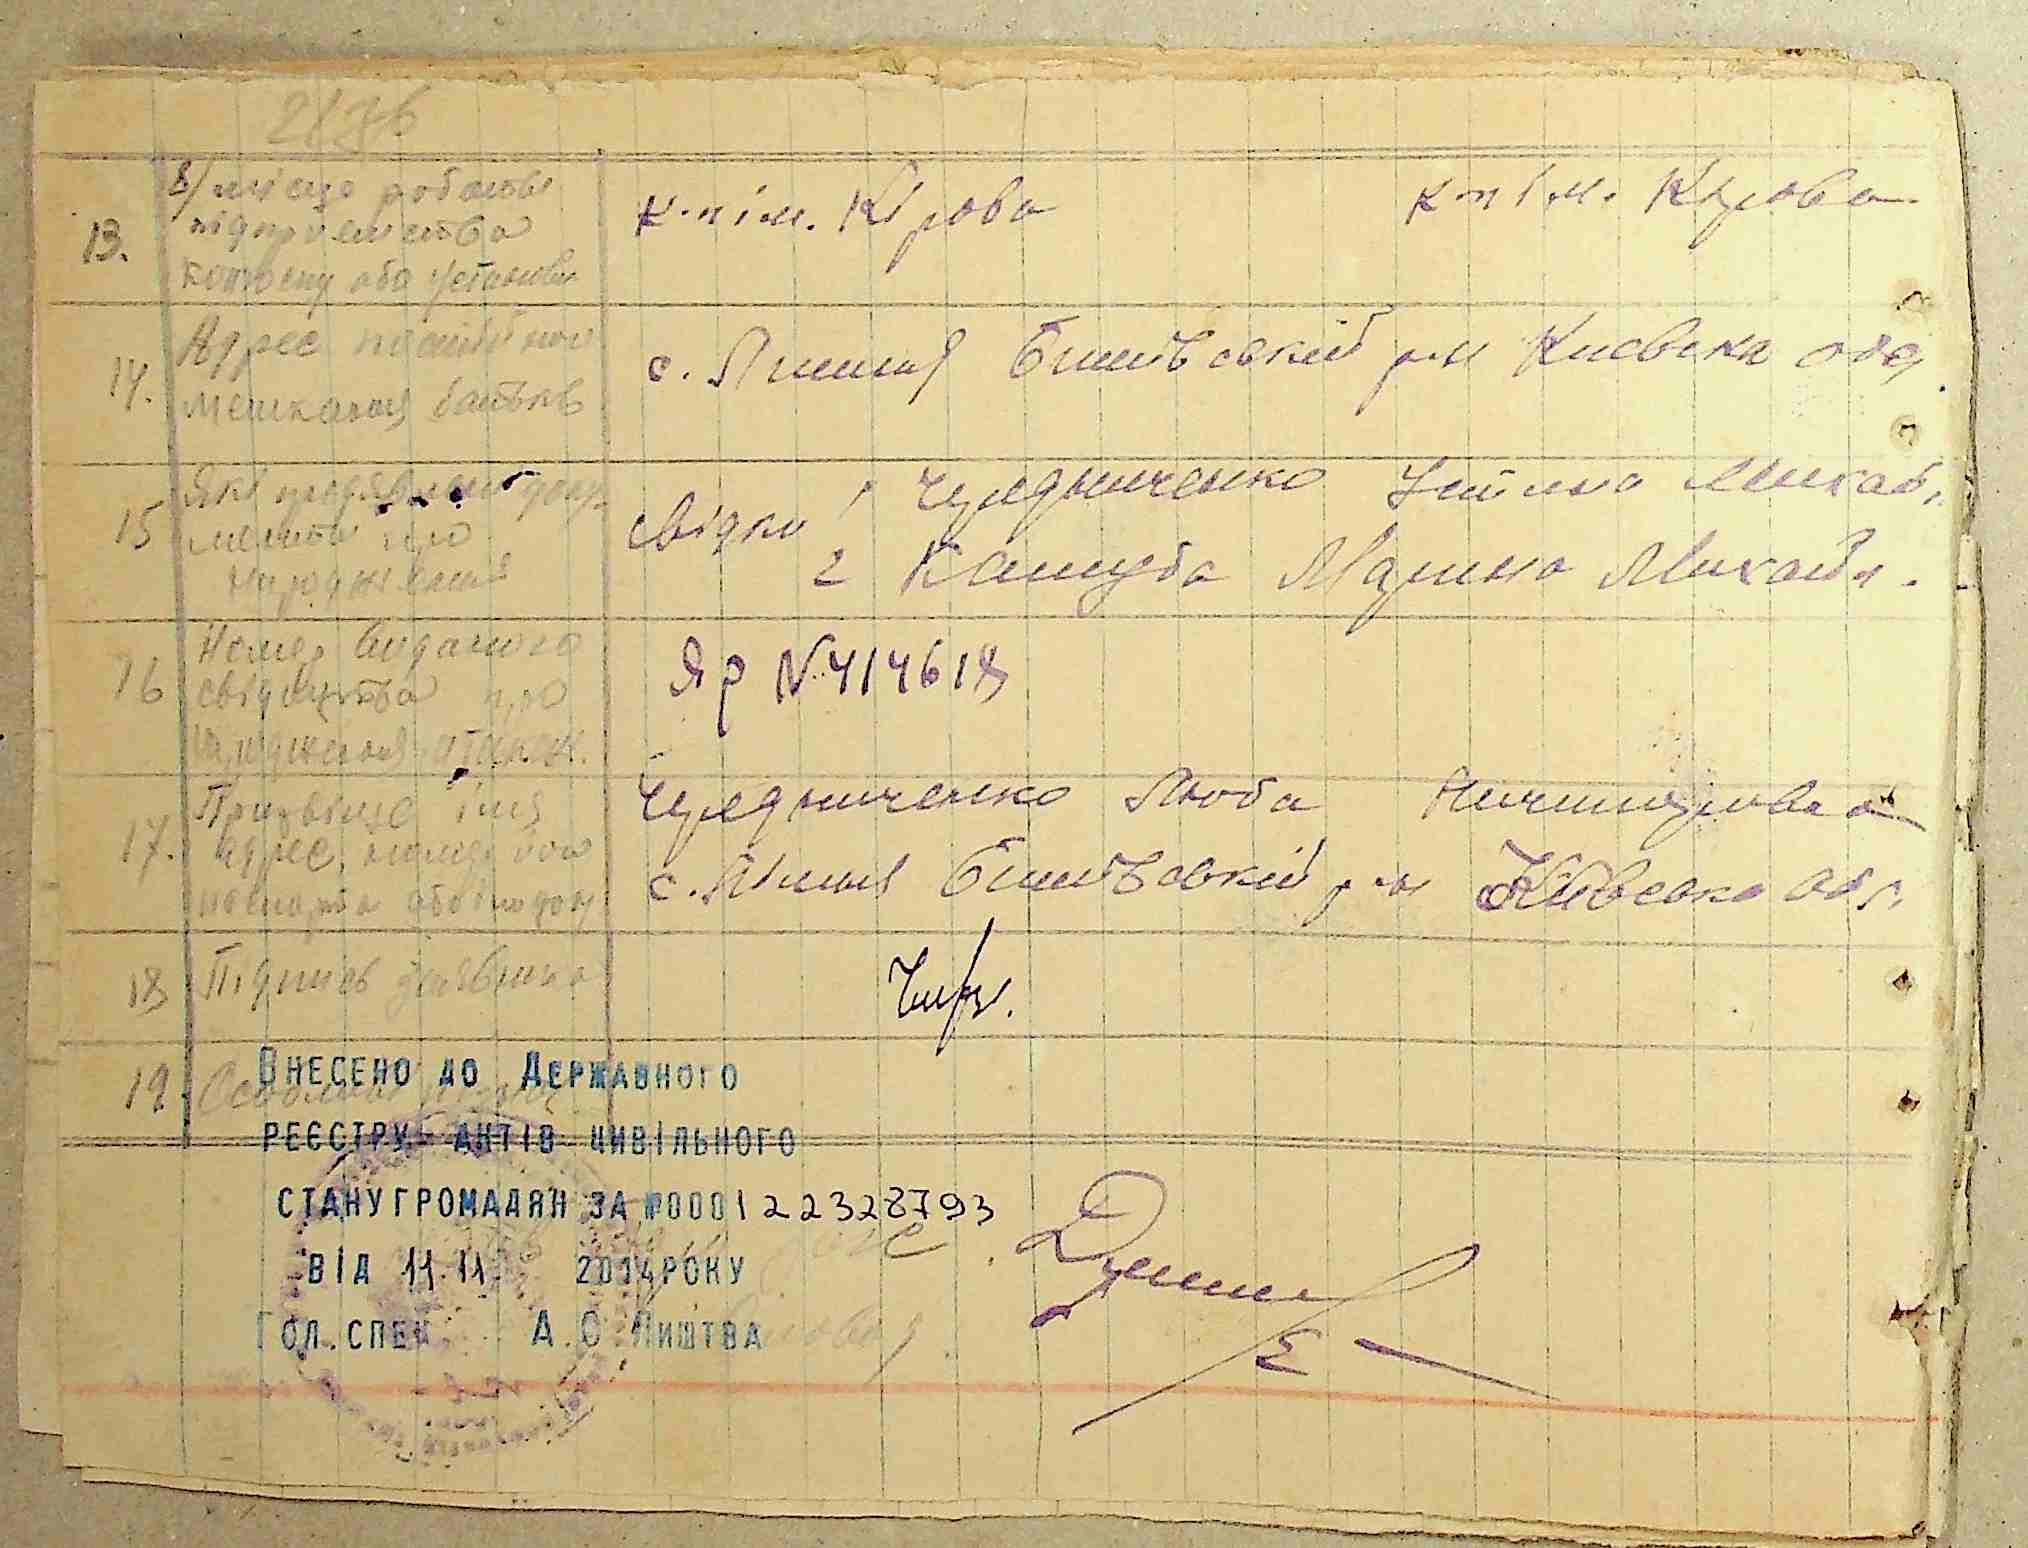 13.
в/ місце роботи
підприємства
колгоспу або установи
к-п ім. Кірова
к-п ім. Кірова
14.
Адрес постійного
мешкання батьків
с. Бишівський р-н Київська обл.
15
Які пред'явлені доку-
менти про
народження
свідки 1 Чередниченко Устина Михай.
2 Кашуба Марина Михайл.
16
Номер виданого
свідоцтва про
народження
Яр № 414618
17.
Прізвище ім'я
адрес, номер його
паспорта або
Чередниченко Люба Ничипоровна
с. Бишівський р-н Київська обл.
18
Підпис заявника
Чер.
19.
Внесено до Державного
реєстру актів цивільного
стану громадян за №00012 2328793
від 11.11. 2014 року
Гол. спец. А.О. Лиштва